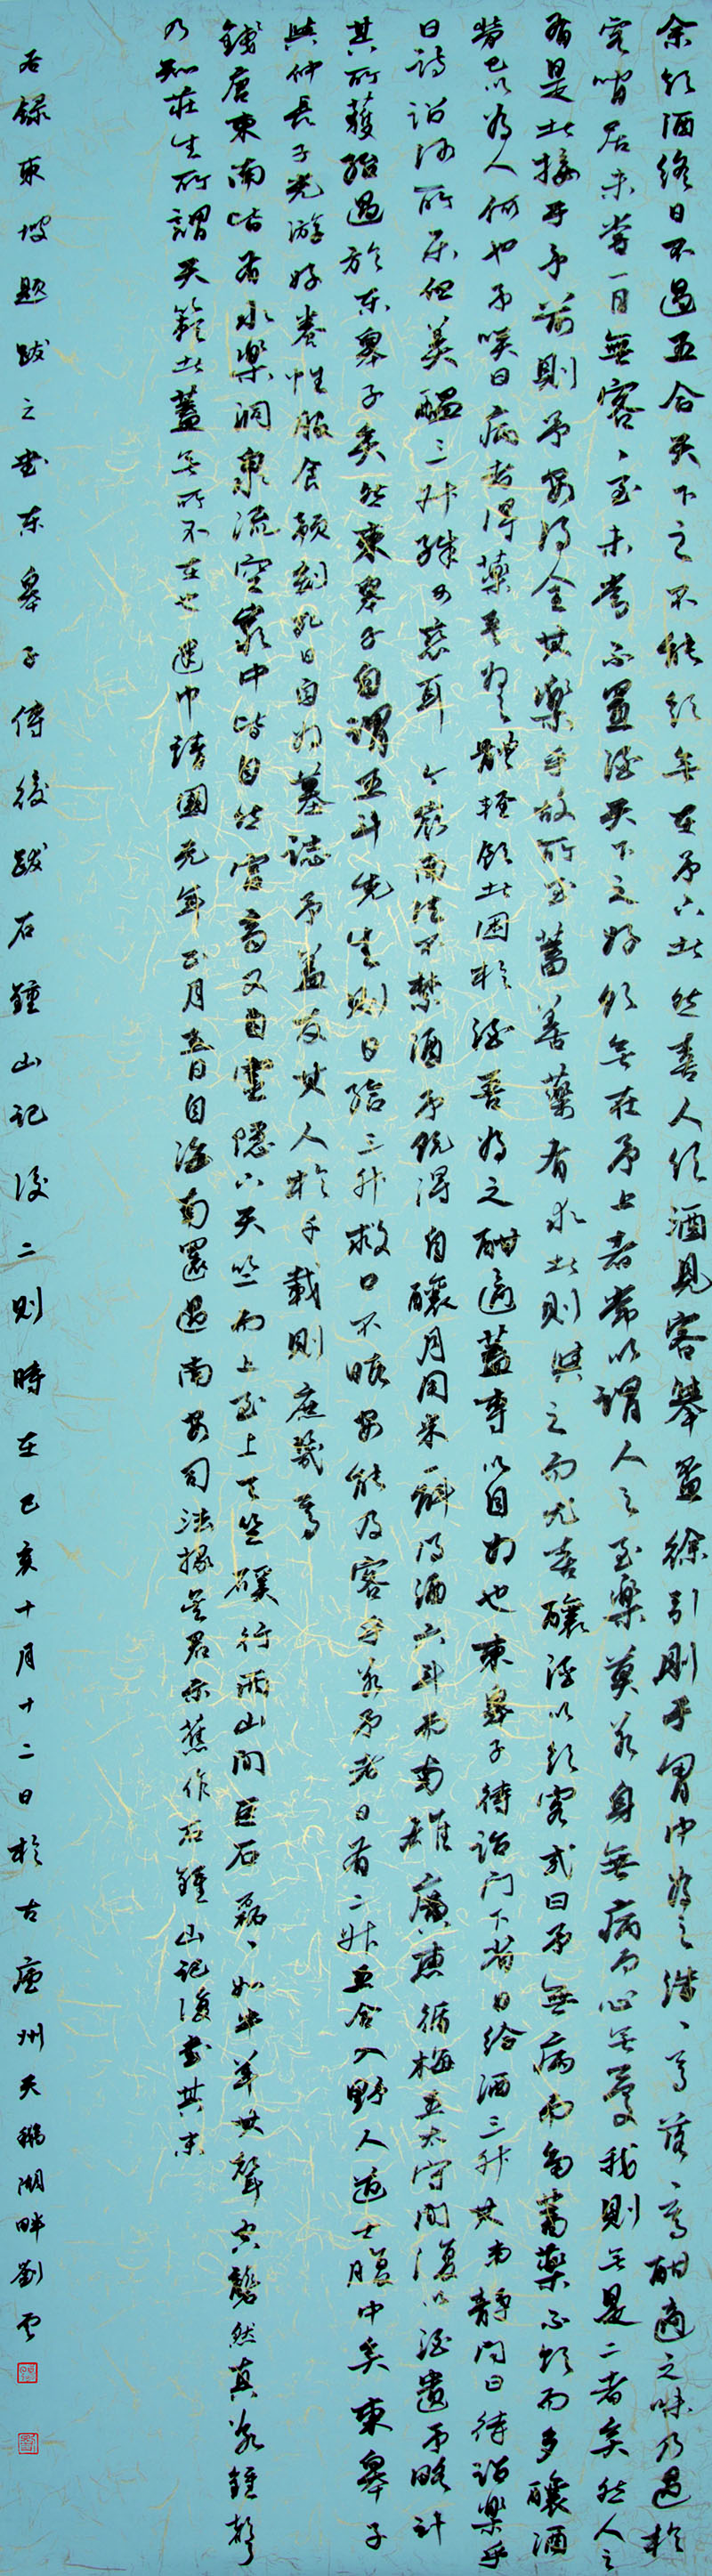 余飲酒終日不過五合天下之不能飲無在予下者然喜人飲酒見客舉盃徐引則予胷中為之浩〻焉落〻焉酣適之味乃過於
客閒居未嘗一日無客〻至未嘗不置酒天下之好飲無在予上者常以謂人之至樂莫若身無病而心無憂我則無是二者矣然人之
有是者接于予前則予安得全其樂乎故所至蓄善藥有求者則與之而尤喜釀酒以飲客或曰予無病而多蓄藥不飲而多釀酒
勞己以為人何也予咲曰病者得藥吾為之體輕飲者困於酒吾為之酣適蓋專以自為也東皋子待詔門下省日給酒三升其弟靜問曰待詔樂乎
曰待詔何所樂但美醞三升殊可戀耳今嶺南法不禁酒予既得自釀月用米一斛得酒六斗而南雄廣惠循梅五太守間復以酒遺予略計
其所獲殆過於東皋子矣然東皋子自謂五斗先生則日給三升救口不暇安能及客乎若予者日有二升五合入野人道士腹中矣東皋子
與仲長子光游好養性服食預刻死日自為墓誌予蓋友其人於千載則庶幾焉
錢唐東南皆有水樂洞泉流空巖中皆自然宮商又自靈隱下天竺而上至上天竺磎行兩山間巨石磊〻如牛羊其聲空礱然真若鍾聲
乃知莊生所謂天籟者蓋無所不在也建中靖國元年正月吾日自海南還過南安司法掾吳君示舊作石鍾山記復書其末
右錄東坡題跋之書東皋子傳後跋石鍾山記後二則時在己亥十月十二日於古廬州天鵝湖畔劉雲